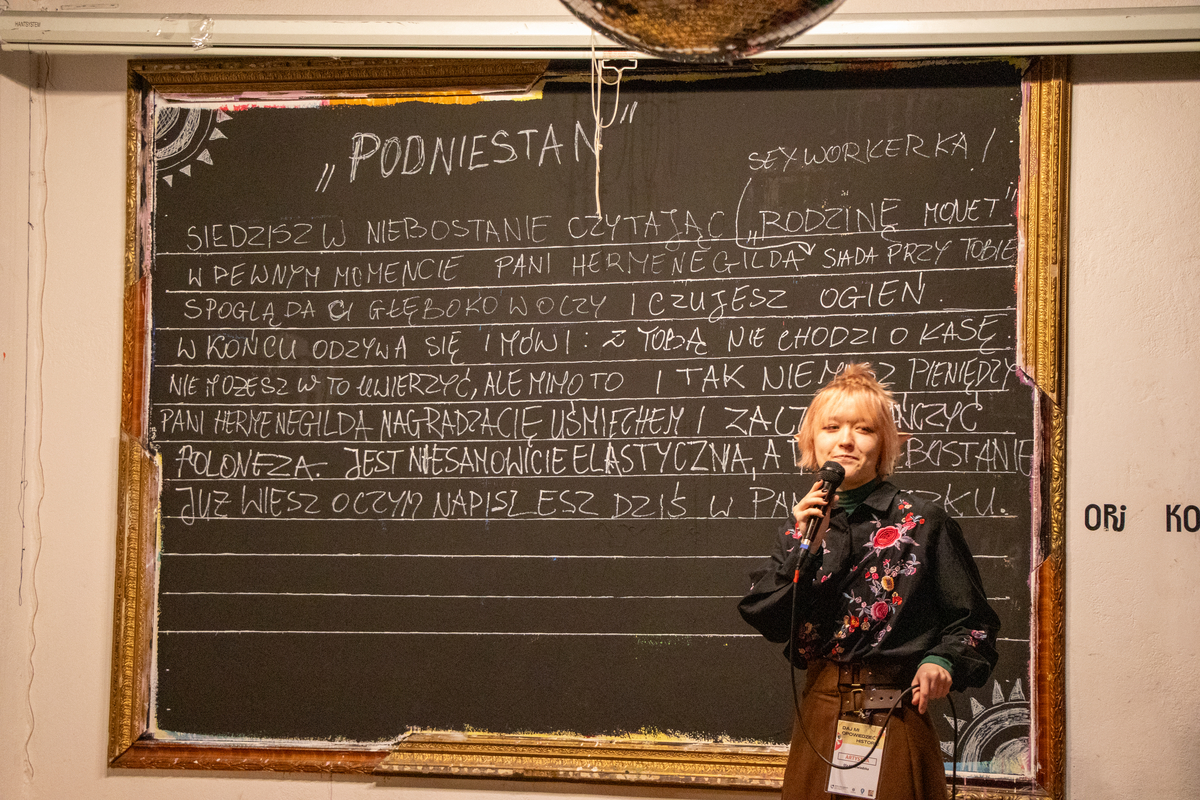 HANTSYSTEM
„PODNIESTAN”
SEXWORKERKA /
SIEDZISZ W NIEBOSTANIE CZYTAJĄC „RODZINĘ MONET”.
W PEWNYM MOMENCIE PANI HERMENEGILDA SIADA PRZY TOBIE
SPOGLĄDA CI GŁĘBOKO W OCZY I CZUJESZ OGIEŃ.
W KOŃCU ODZYWA SIĘ I MÓWI: Z TOBĄ NIE CHODZI O KASĘ.
NIE MOŻESZ W TO UWIERZYĆ, ALE MIMO TO I TAK NIE PIENIĘDZY
PANI HERMENEGILDA NAGRADZA CIĘ UŚMIECHEM I
POLONEZA. JEST NIESAMOWICIE ELASTYCZNA, A
JUŻ WIESZ O CZYM NAPISZESZ DZIŚ W
ORI KO
DAJ MI
OPOWIEDZIEĆ